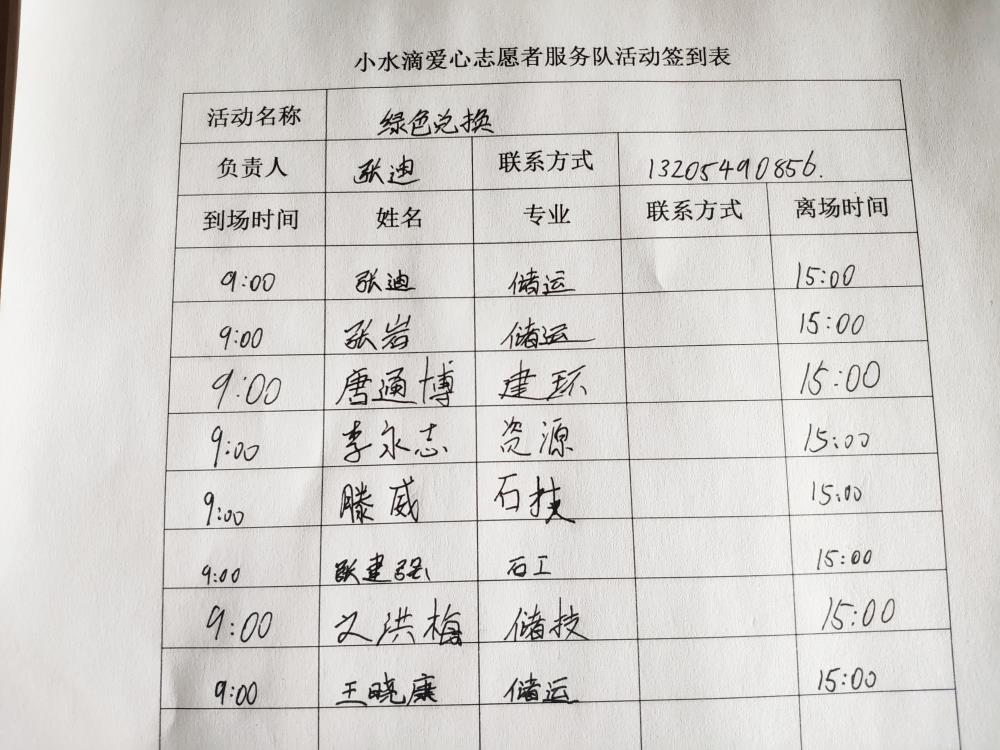 小水滴爱心志愿者服务队活动签到表
活动名称 绿色兑换
负责人 张迪 联系方式 13205490856.
到场时间 姓名 专业 联系方式 离场时间
9:00 张迪 储运 15:00
9:00 张岩 储运 15:00
9:00 唐通博 建环 15:00
9:00 李永志 资源 15:00
9:00 滕威 石技 15:00
9:00 建强 石工 15:00
9:00 洪梅 储技 15:00
9:00 王晓康 储运 15:00